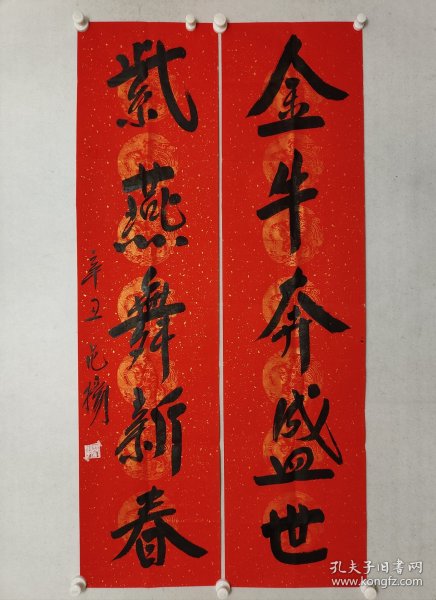 金牛奔盛世
紫燕舞新春
辛丑
孔夫子旧书网
www.kongfz.com